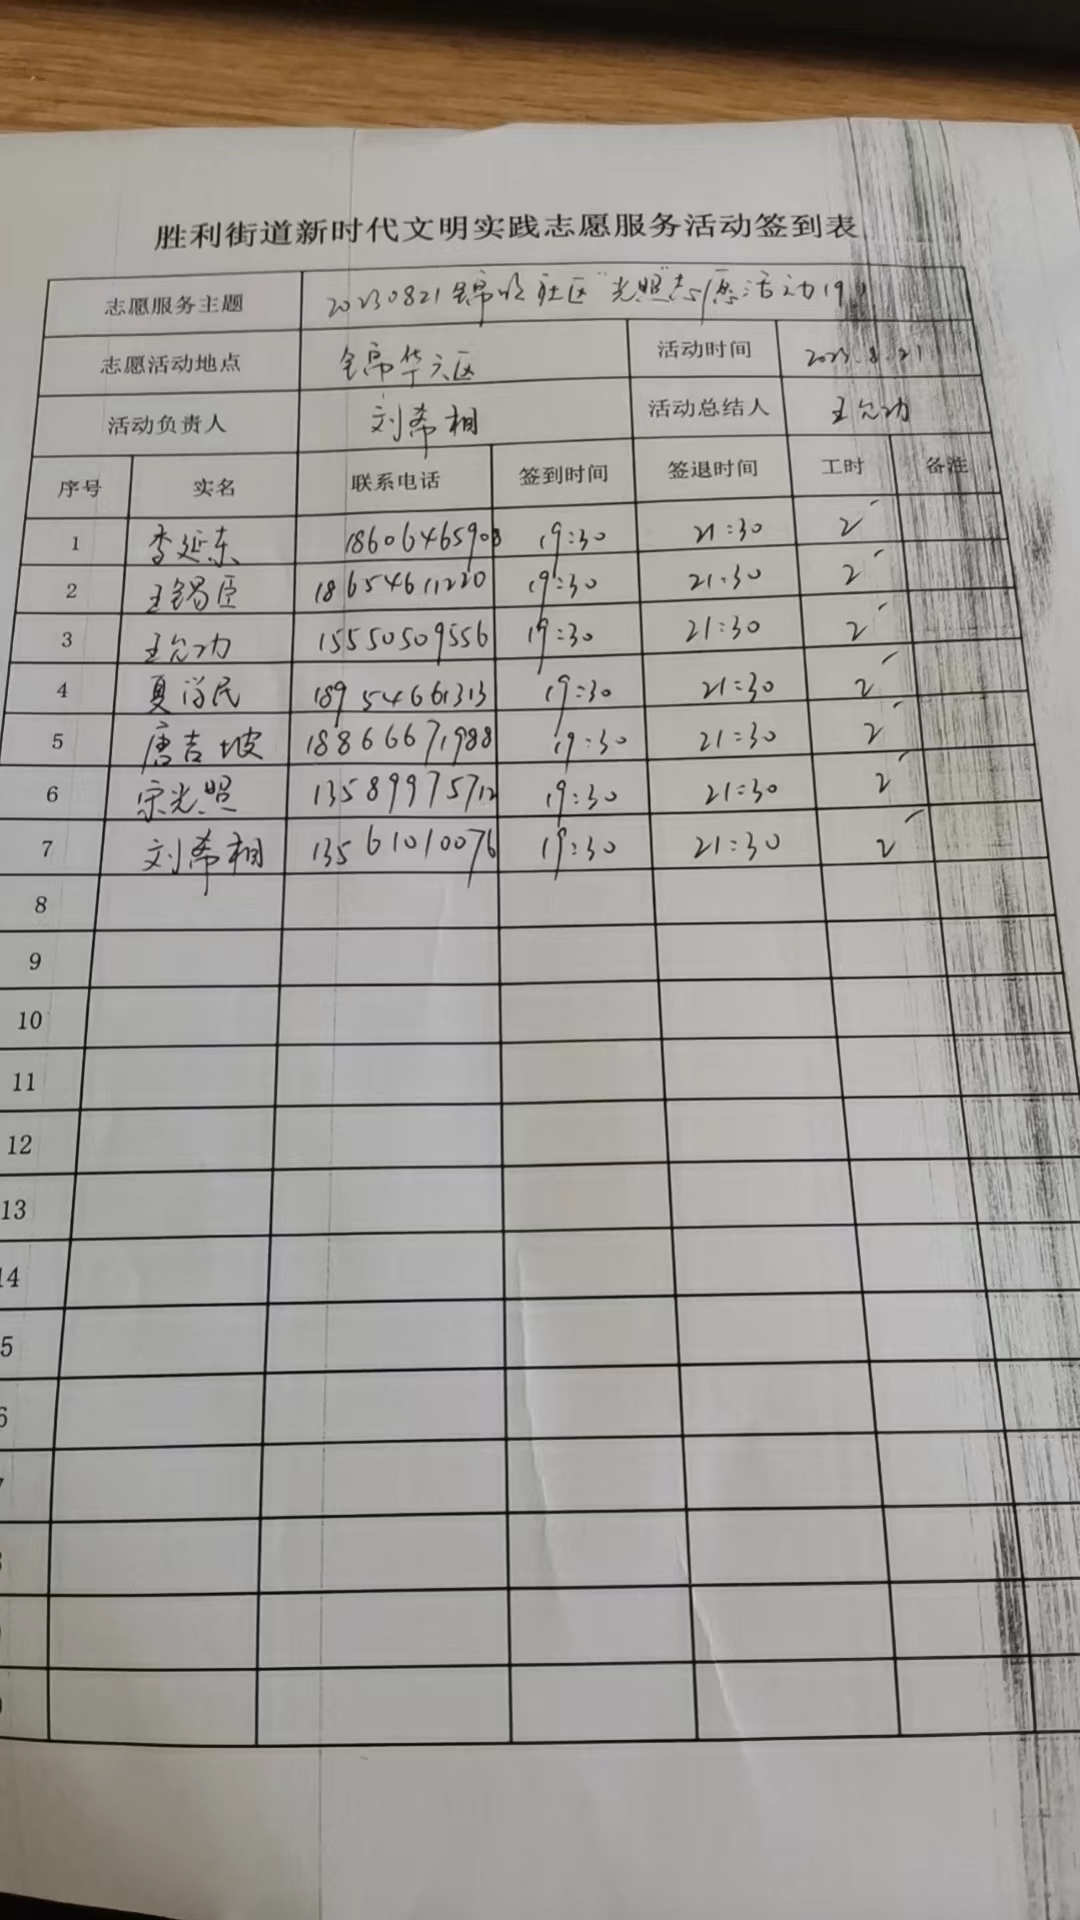 胜利街道新时代文明实践志愿服务活动签到表
志愿服务主题 20230821锦明社区"光照"志愿活动19
志愿活动地点 锦华六区 活动时间 2023.8.21
活动负责人 刘希相 活动总结人 王允功
序号 实名 联系电话 签到时间 签退时间 工时 备注
1 李延东 18606465908 19:30 21:30 2
2 王锡臣 18654611220 19:30 21:30 2
3 王允功 15550509556 19:30 21:30 2
4 夏学民 18954661313 19:30 21:30 2
5 唐吉坡 18866671988 19:30 21:30 2
6 宋光照 13589975712 19:30 21:30 2
7 刘希相 13561010076 19:30 21:30 2
8
9
10
11
12
13
14
5
6